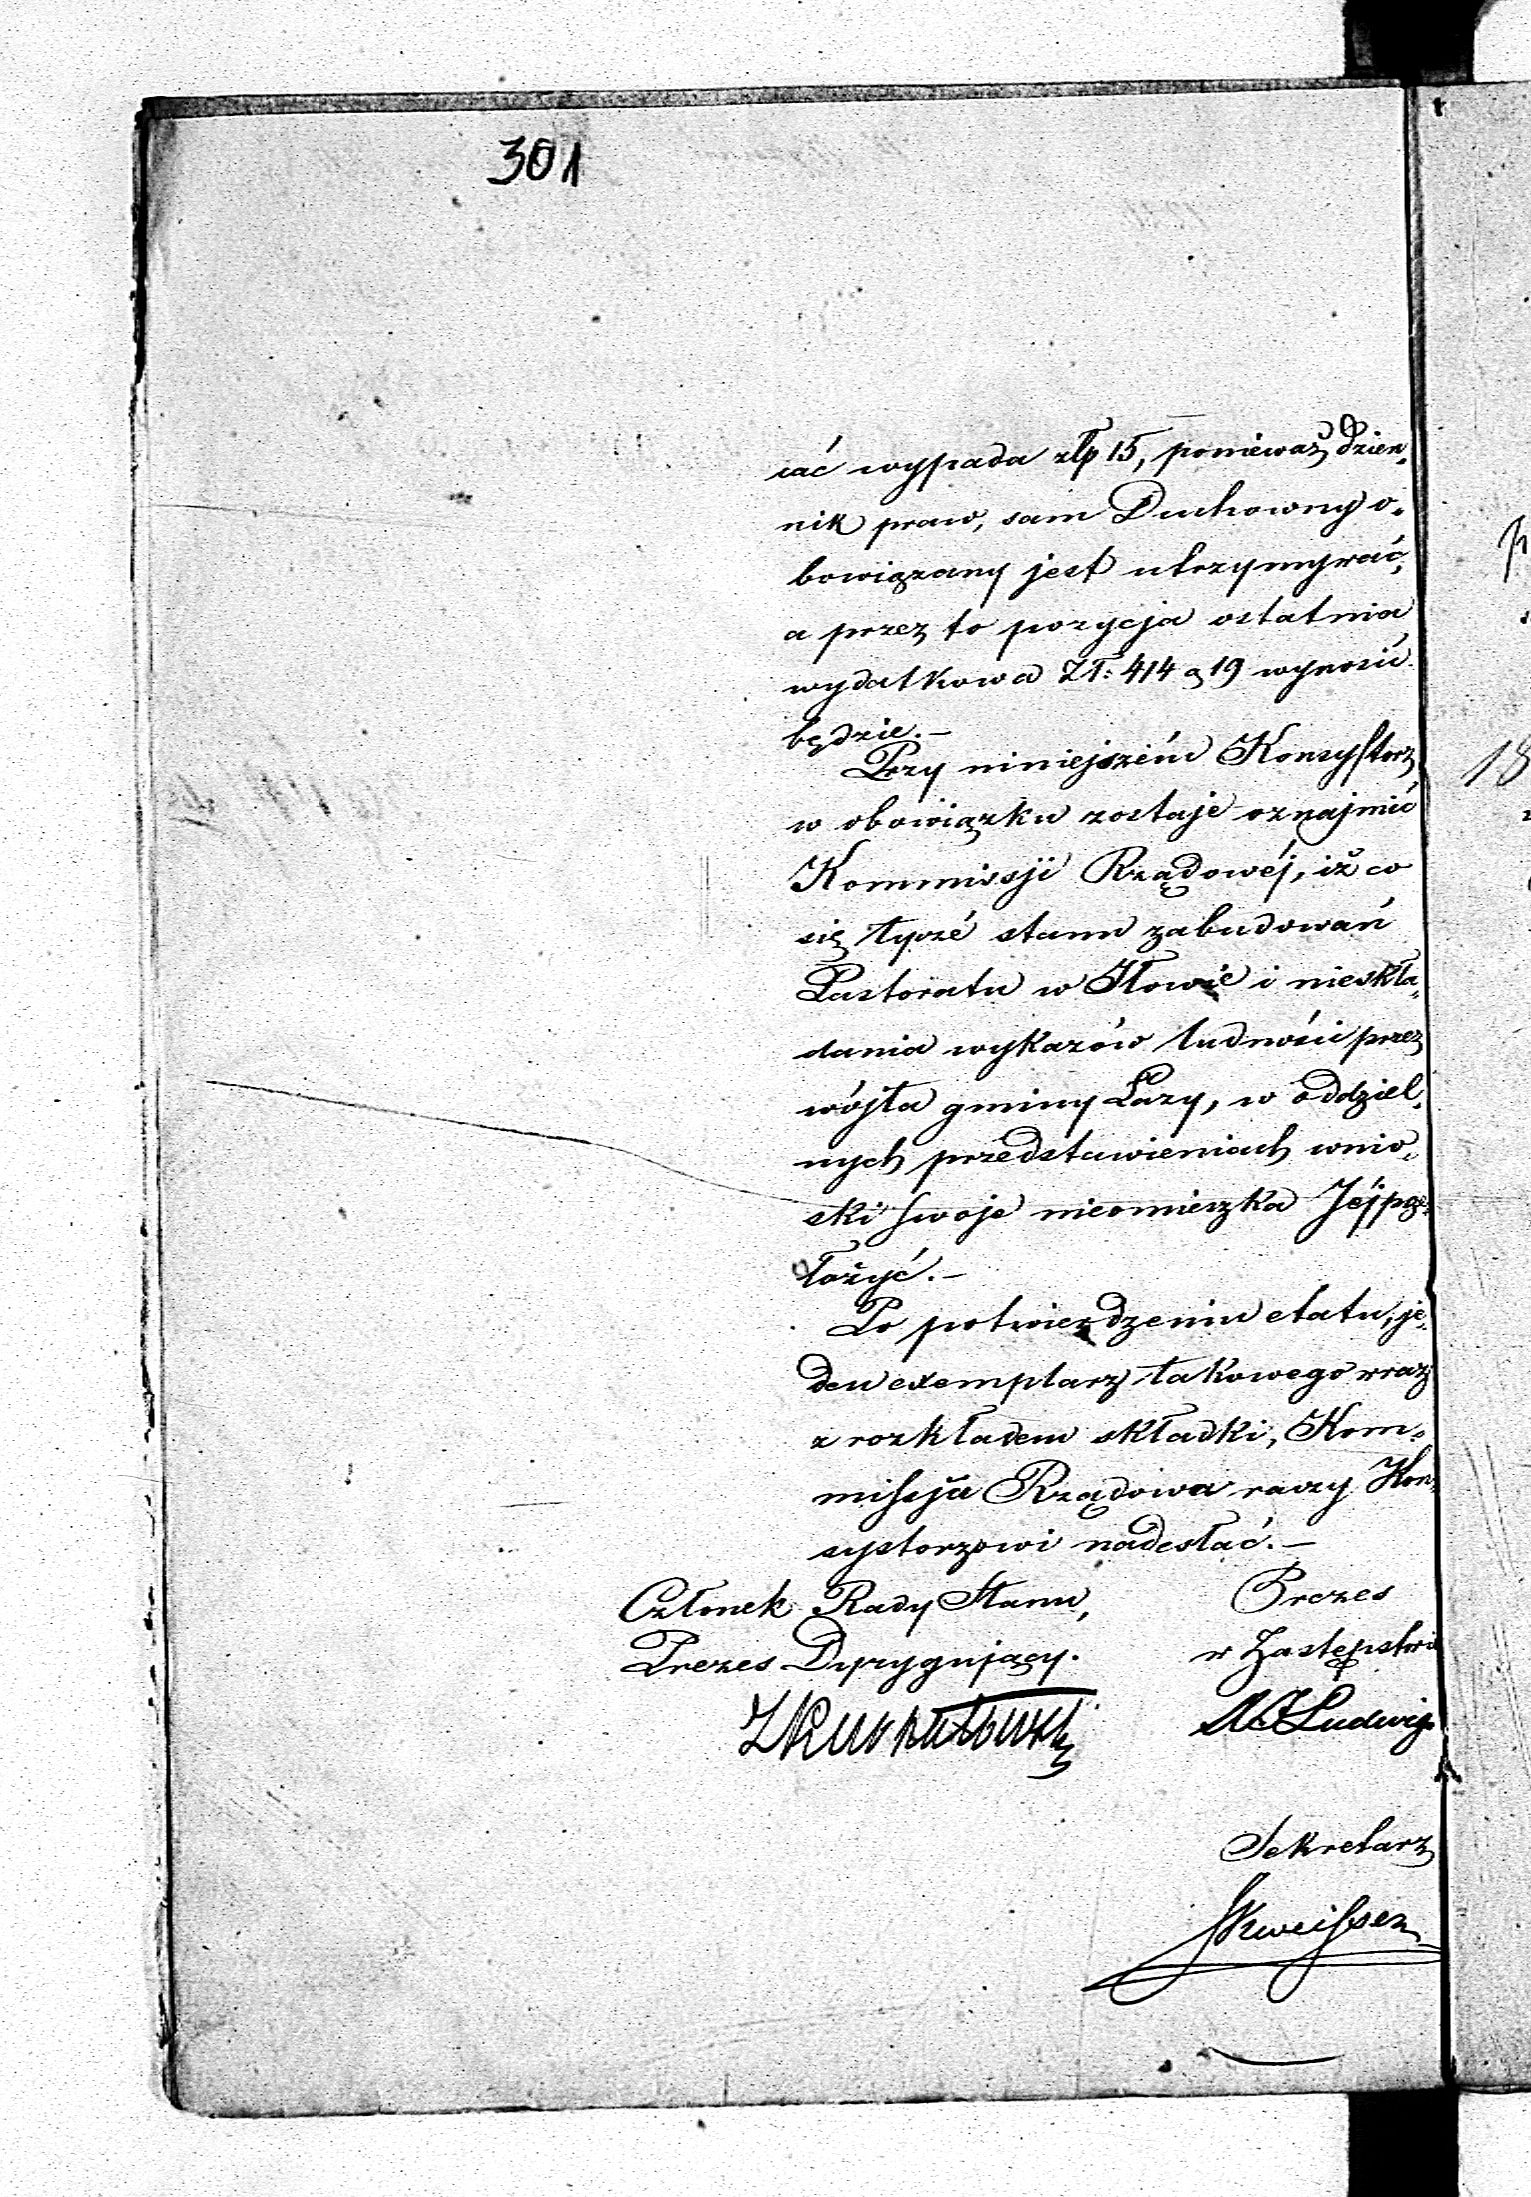 301
cać wypada złp 15, ponieważ dzien„
nik praw, sam Duchowny o„
bowiązany jest utrzymywać,
a przez to pozycja ostatnia
wydatkowa Zł: 414 g 19 wynosić
będzie.—
Przy niniejszém Konsystorz
w obowiązku zostaje oznajmić
Kommissji Rządowéj, iż co
się tyczé stanu zabudowań
Pastoratu w Iłowie i nieskła„
dania wykazów ludności przez
wójta gminy Łazy, w oddziel„
nych przedstawieniach wnio„
ski swoje nieomieszka Jéj prze„
łożyć.—
Po potwierdzeniu etatu, je„
den exemplarz takowego wraz
z rozkładem składki, Kom„
missja Rządowa raczy Kon„
systorzowi nadesłać.—
Członek Rady Stanu,
Prezes Dyrygujący.
Prezes
w Zastępstwie
Ludwig
Sekretarz
18